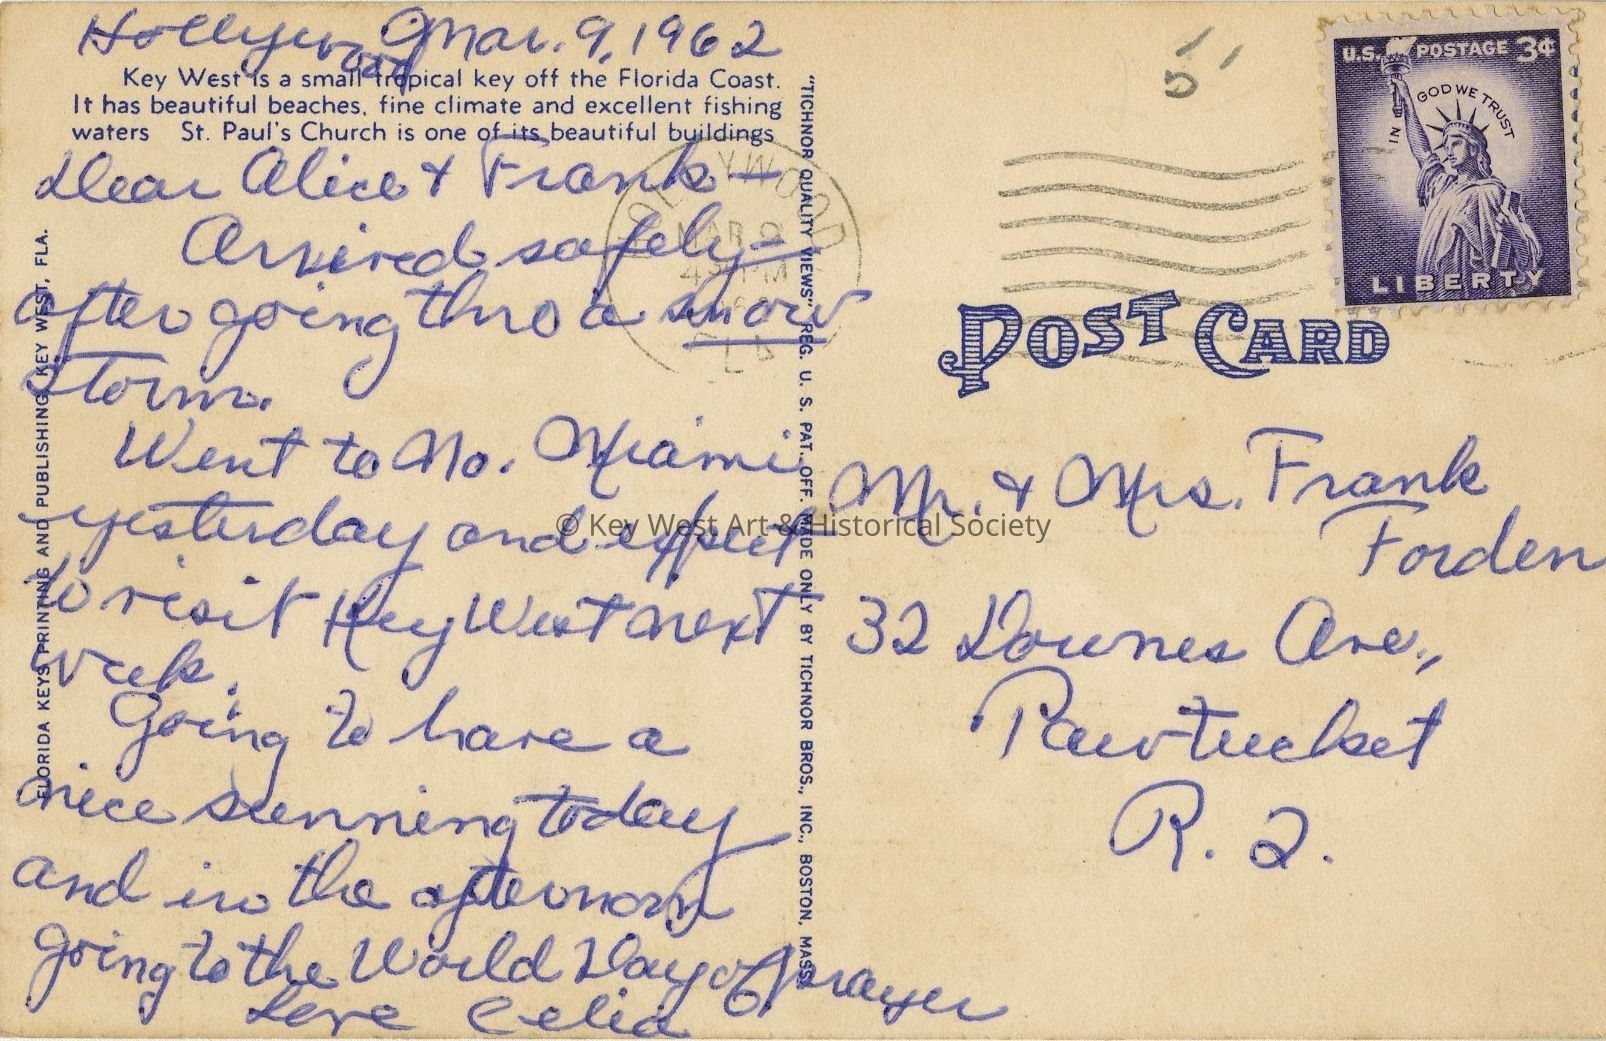 Hollywood Mar. 9, 1962
Key West is a small tropical key off the Florida Coast.
It has beautiful beaches, fine climate and excellent fishing
waters St. Paul's Church is one of its beautiful buildings
Dear Alice & Frank —
Arrived safely —
after going thro a snow
storm.
Went to No. Miami
yesterday and expect
to visit Key West next
week.
Going to have a
nice sunning today
and in the afternoon
going to the World Day of Prayer
Love Celia
FLORIDA KEYS PRINTING AND PUBLISHING, KEY WEST, FLA.
"TICHNOR QUALITY VIEWS" REG. U. S. PAT. OFF. MADE ONLY BY TICHNOR BROS., INC., BOSTON, MASS.
HOLLYWOOD
MAR 9
4 PM
FLA
5
U.S. POSTAGE 3¢
IN GOD WE TRUST
LIBERTY
POST CARD
Mr. & Mrs. Frank
Forden
32 Downes Ave.,
Pawtucket
R. I.
© Key West Art & Historical Society